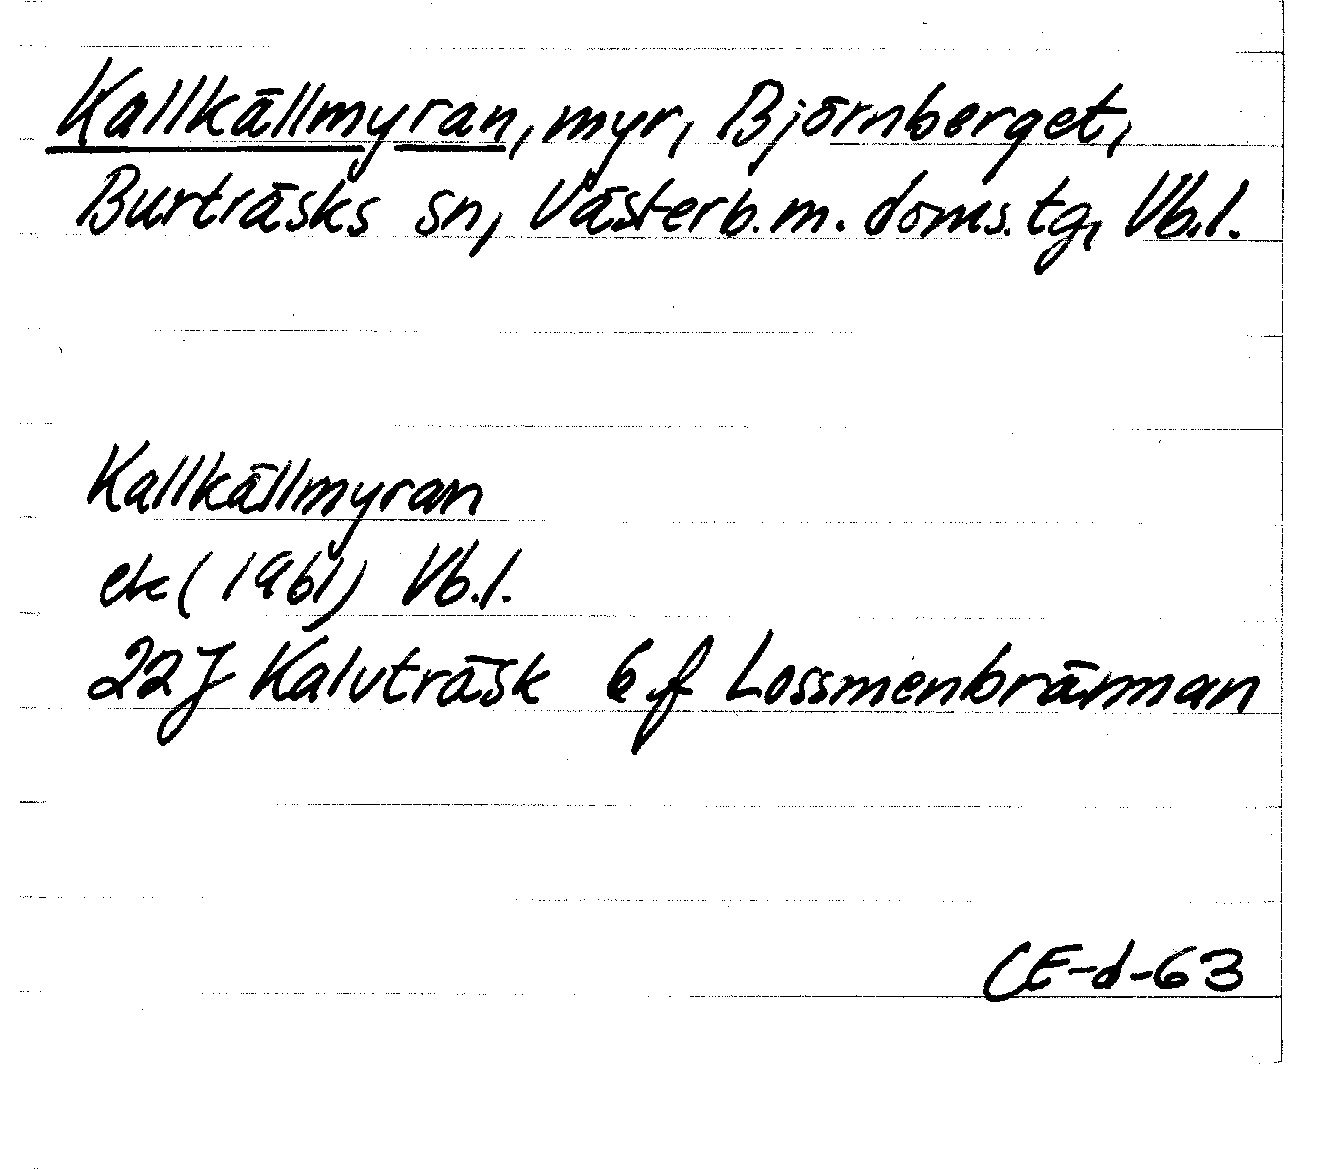 Kallkällmyran, myr, Björnberget,
Burträsks sn, Västerb.m. doms.tg, Vb.l.
Kallkällmyran
ek (1961) Vb.l.
22J Kalvträsk 6 f Lossmenbrännan
CE-d-63